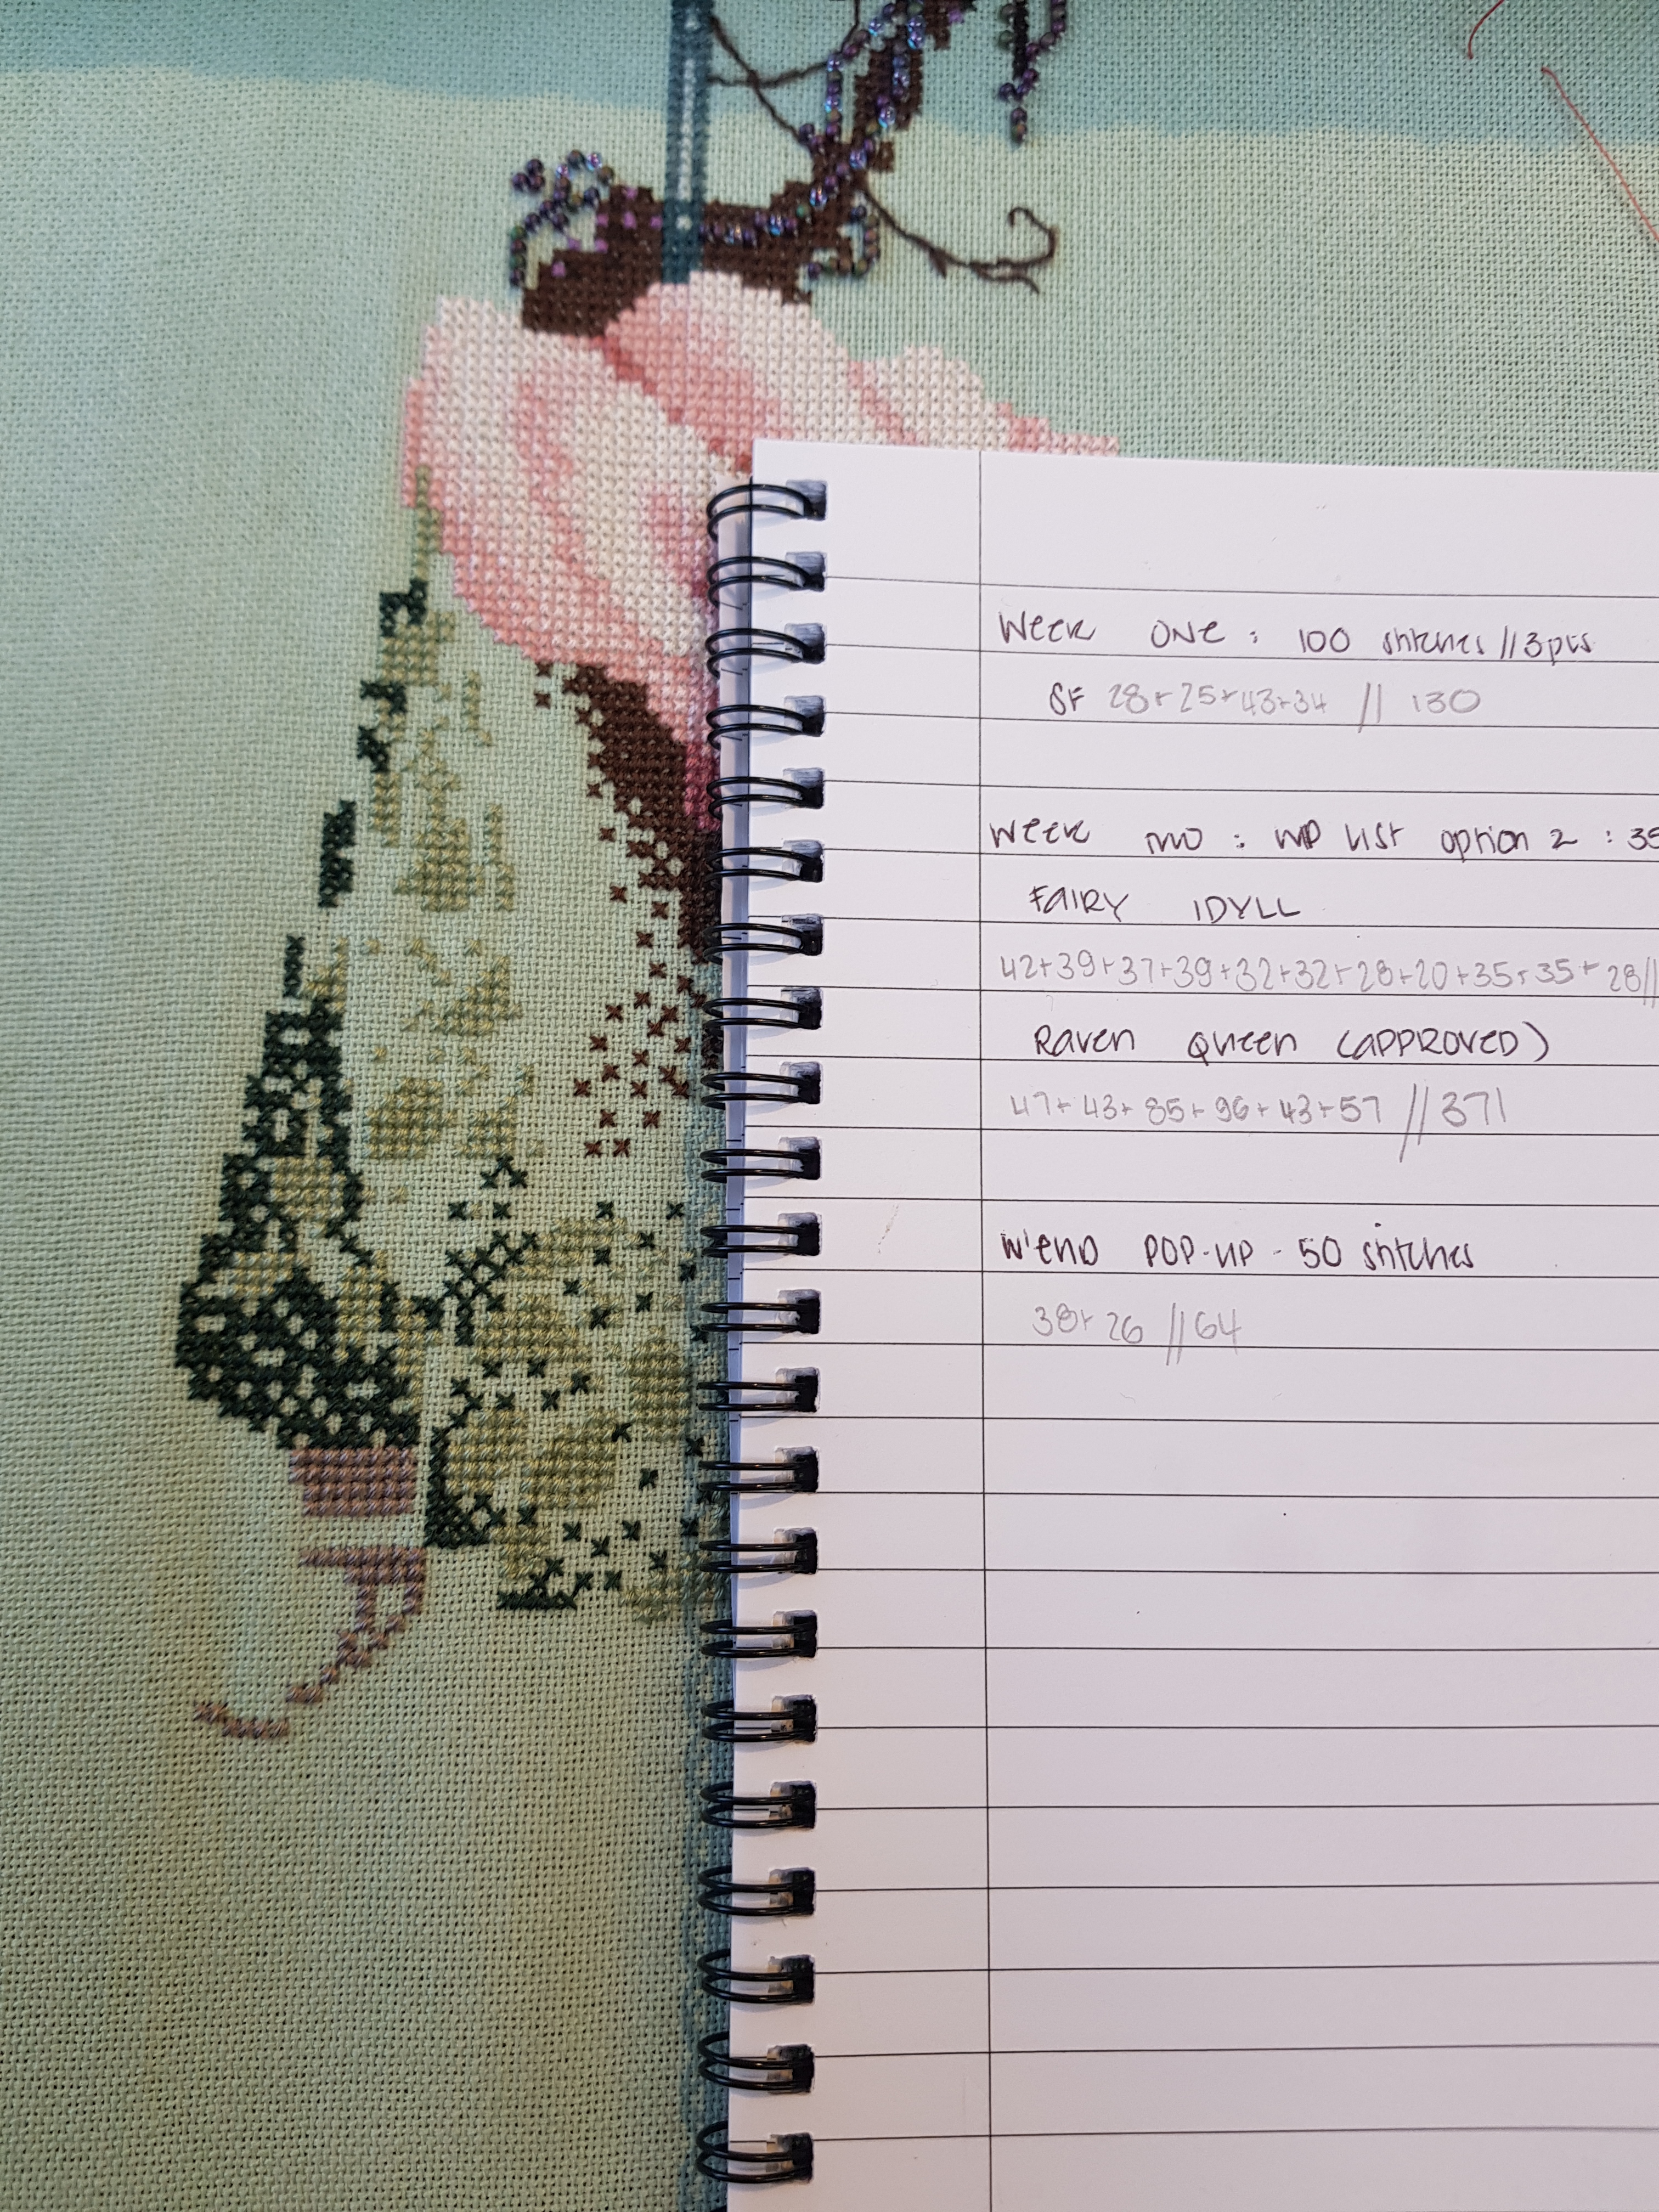 Week ONE : 100 stitches // 3pts
SF 28+25+43+34 // 130
Week TWO : WIP LIST option 2 : 35
FAIRY IDYLL
42+39+37+39+32+32+28+20+35+35+28//
Raven Queen (APPROVED)
47+43+85+96+43+57 // 371
W'END POP-UP - 50 stitches
38+26 // 64